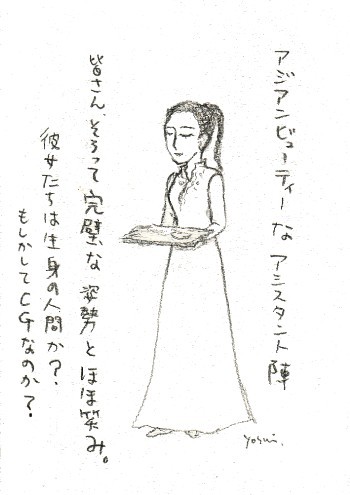 アジアンビューティーな アシスタント陣
皆さん、そろって 完璧な 姿勢と ほほ笑み。
彼女たちは生身の人間か?
もしかしてCGなのか?
yoshi.